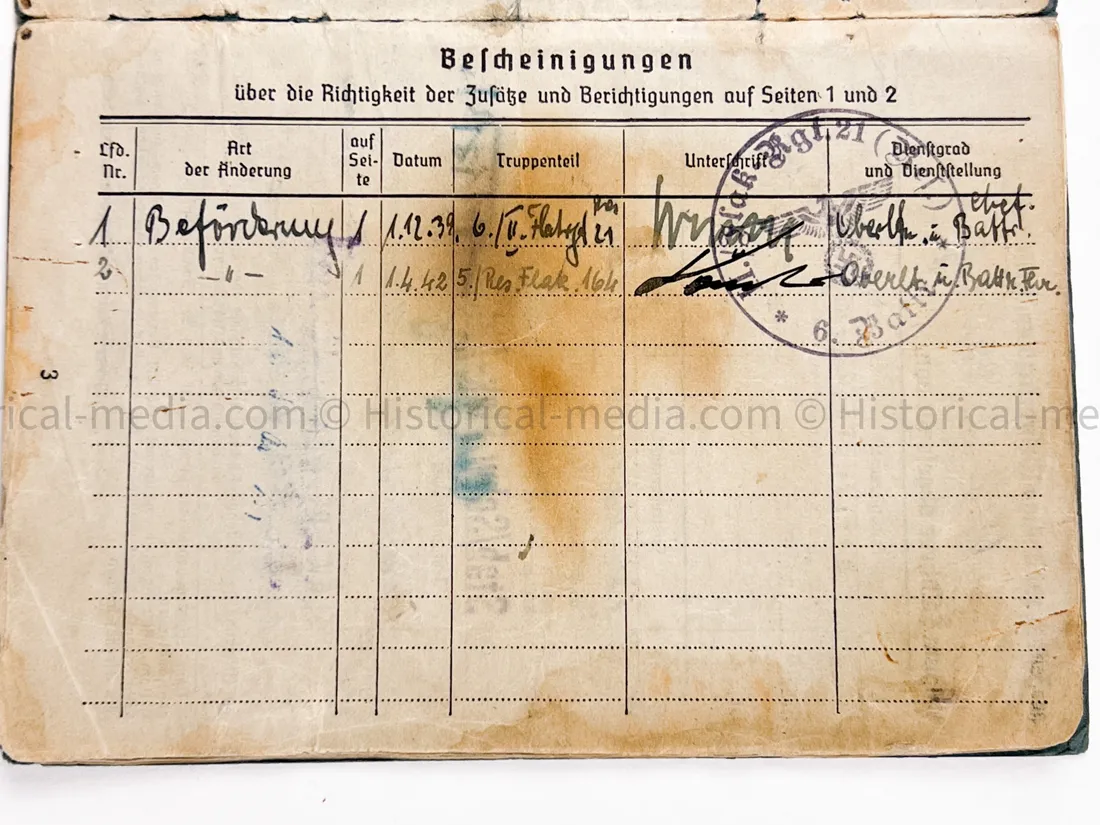 Bescheinigungen
über die Richtigkeit der Zusätze und Berichtigungen auf Seiten 1 und 2
Lfd. Nr. Art der Änderung auf Sei-te Datum Truppenteil Unterschrift Dienstgrad und Dienststellung
1 Beförderung 1 1.12.39. 6./II. 21 Oberltn. u. Battr. chef.
2 -"- 1 1.4.42 5./Res. Flak. 164 Oberlt. u. Battr. Fhr.
II./Flak Rgt. 21
* 6. Batt. *
3
© Historical-media.com © Historical-media.com © Historical-me